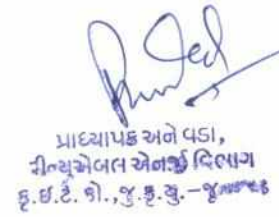 પ્રાધ્યાપક અને વડા,
રીન્યુએબલ એનર્જી વિભાગ
કૃ.ઇ.ટે. કો., જુ.કૃ.યુ.–